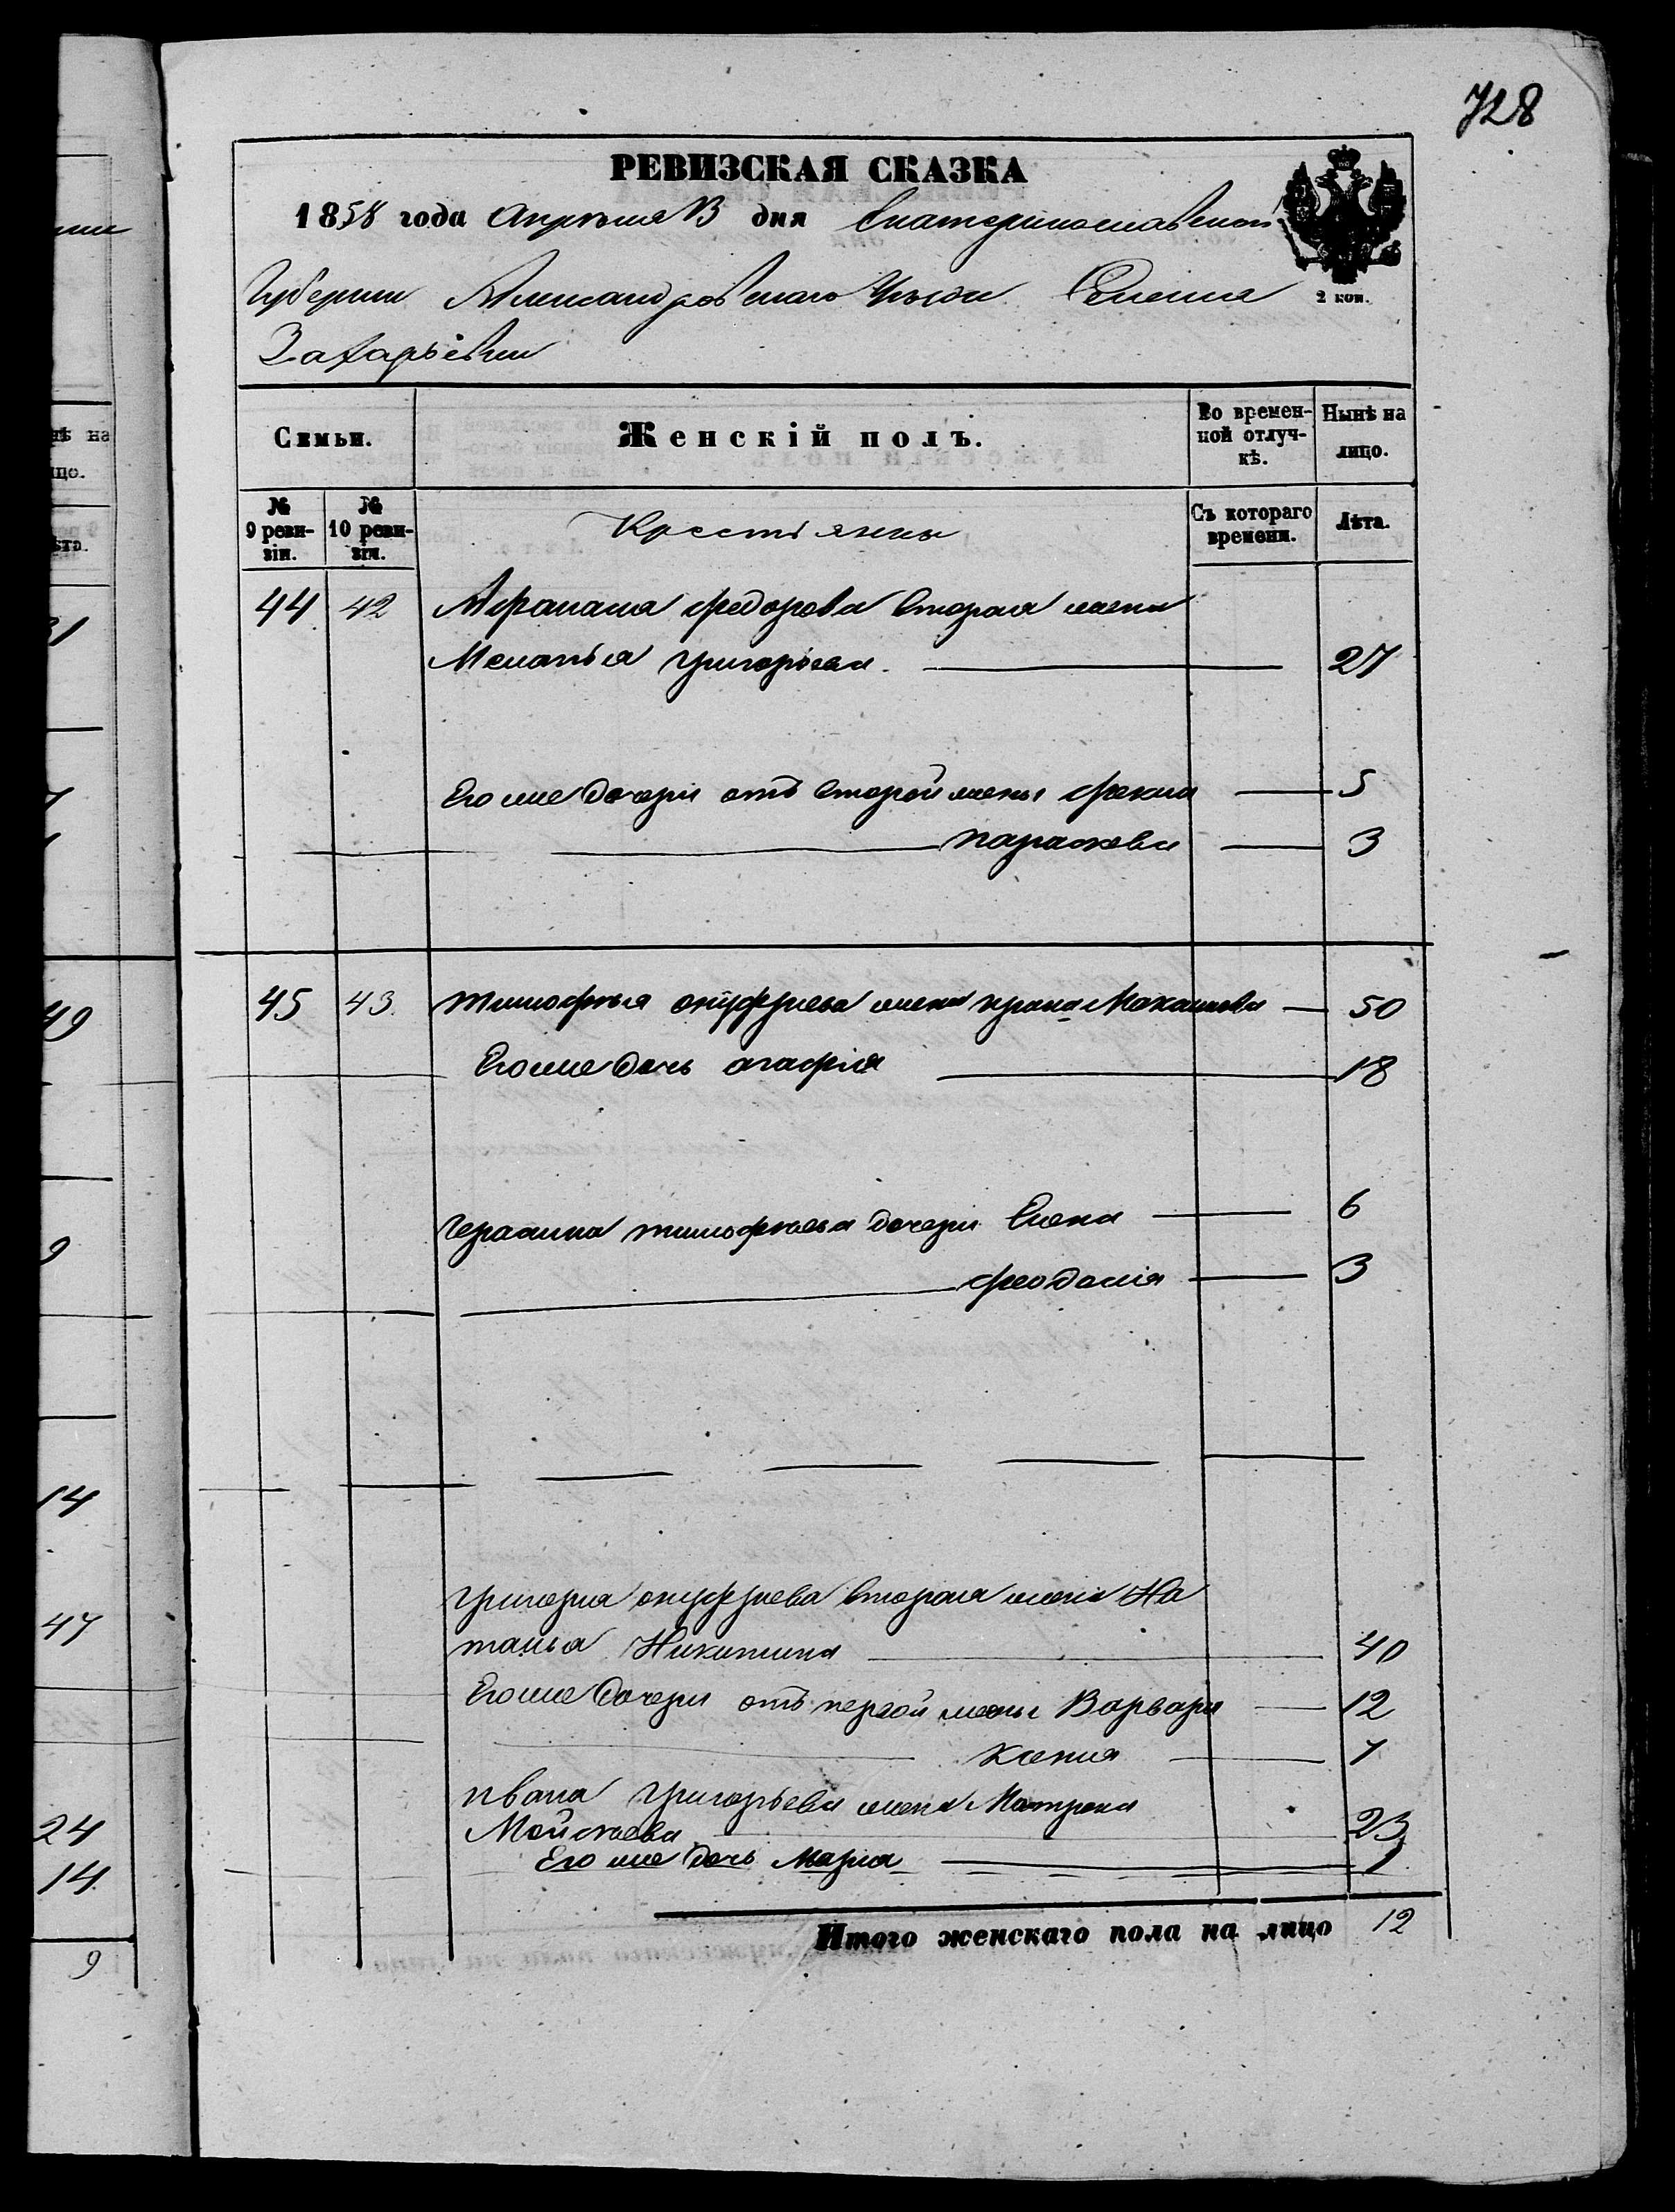 728
РЕВИЗСКАЯ СКАЗКА
1858 года Апреля 13 дня Екатеринославской
Губернии Александровскаго Уѣзда Селенія
2 коп.
Захарьевки
Семьи. Женскій полъ. Во временной отлучкѣ. Нынѣ на лицо.
№ 9 ревизіи. № 10 ревизіи. Крестьянки Съ котораго времени. Лѣта.
44 42 Афанасия Федорова вторая жена
Меланья Григорьева 27
Его же дочери отъ второй жены Фекла 5
Парасковья 3
45 43 Тимофѣя Онуфриева жена 50
Его же дочь Агафія 18
Герасима Тимофѣева дочери Елена 6
Феодосія 3
Григория Онуфриева вторая жена На
талья Никитина 40
Его же дочери отъ первой жены Варвара 12
Ксения 7
Ивана Григорьева жена Матрена
Мойсѣева 23
Его же дочь Мария 1
Итого женскаго пола на лицо 12
31
49
9
14
47
24
14
9